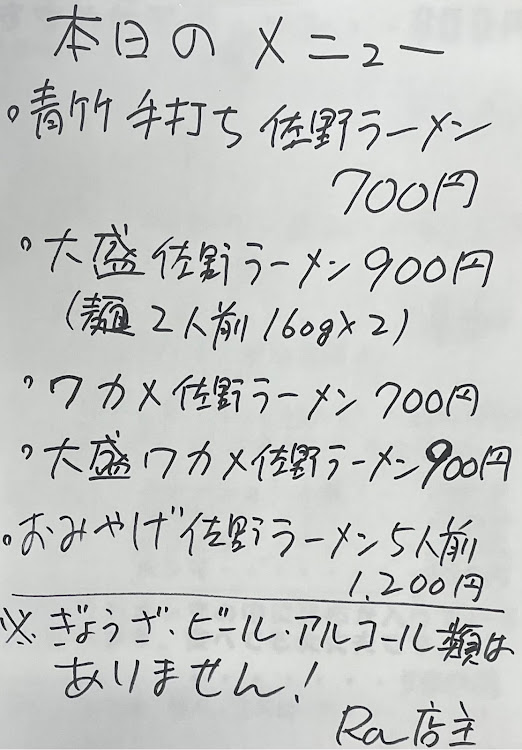 本日のメニュー
。青竹手打ち佐野ラーメン
700円
。大盛佐野ラーメン 900円
(麺2人前160g×2)
。ワカメ佐野ラーメン 700円
。大盛ワカメ佐野ラーメン 900円
。おみやげ佐野ラーメン5人前
1,200円
※ぎょうざ・ビール・アルコール類は
ありません!
Ra店主